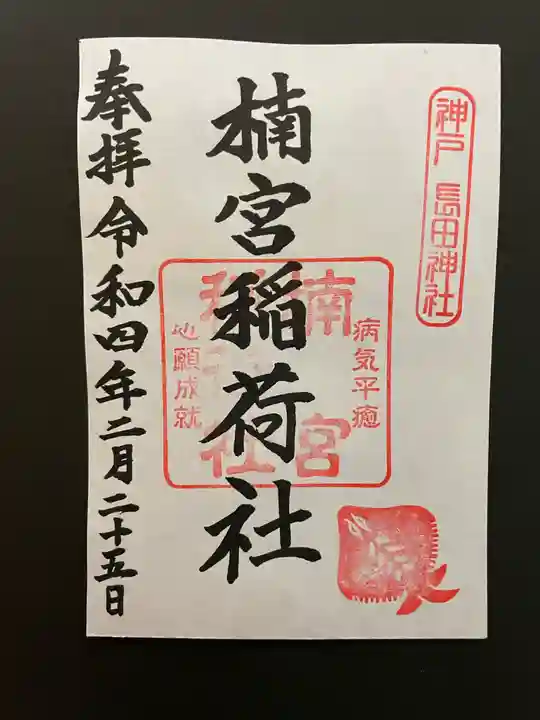 神戸 長田神社
楠宮稲荷社
病気平癒
楠宮
社
心願成就
奉拝 令和四年二月二十五日